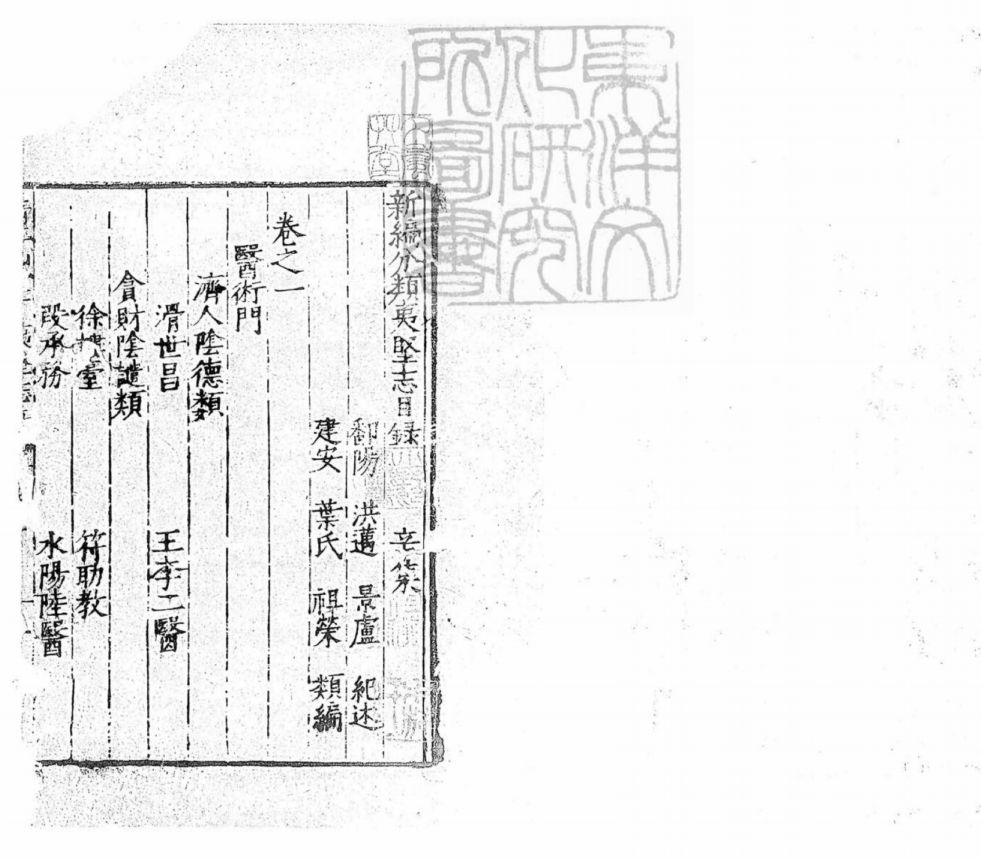 新編分類夷堅志目録 辛集
鄱陽 洪邁 景盧 紀述
建安 葉氏 祖榮 類編
卷之一
醫術門
濟人陰德類
滑世昌 王李二醫
貪財陰譴類
徐樓臺 符助教
段承務 水陽陸醫
東洋文化研究所圖書